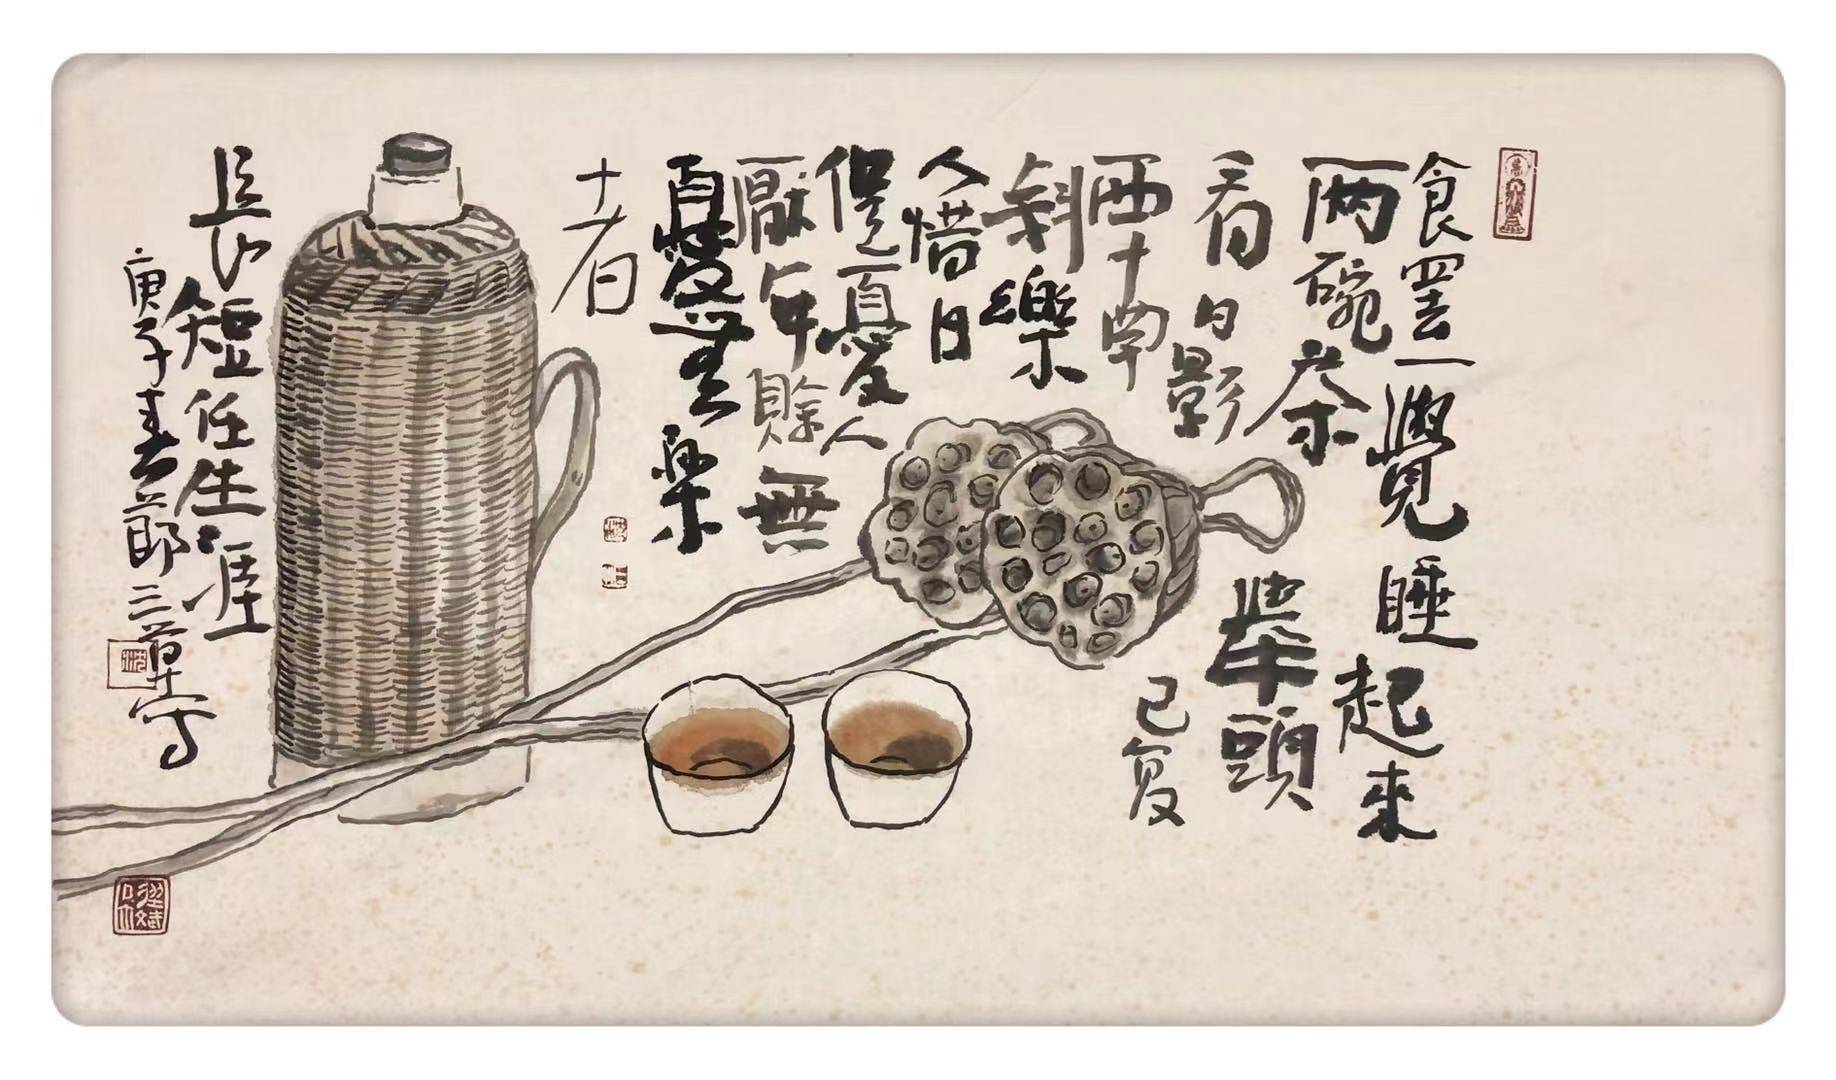 食罢一覺睡起來
两碗茶舉頭
看日影已复
西南斜樂
人惜日
促憂人
厭年賒無
憂無樂
者
長短任生涯
庚子春節三草写